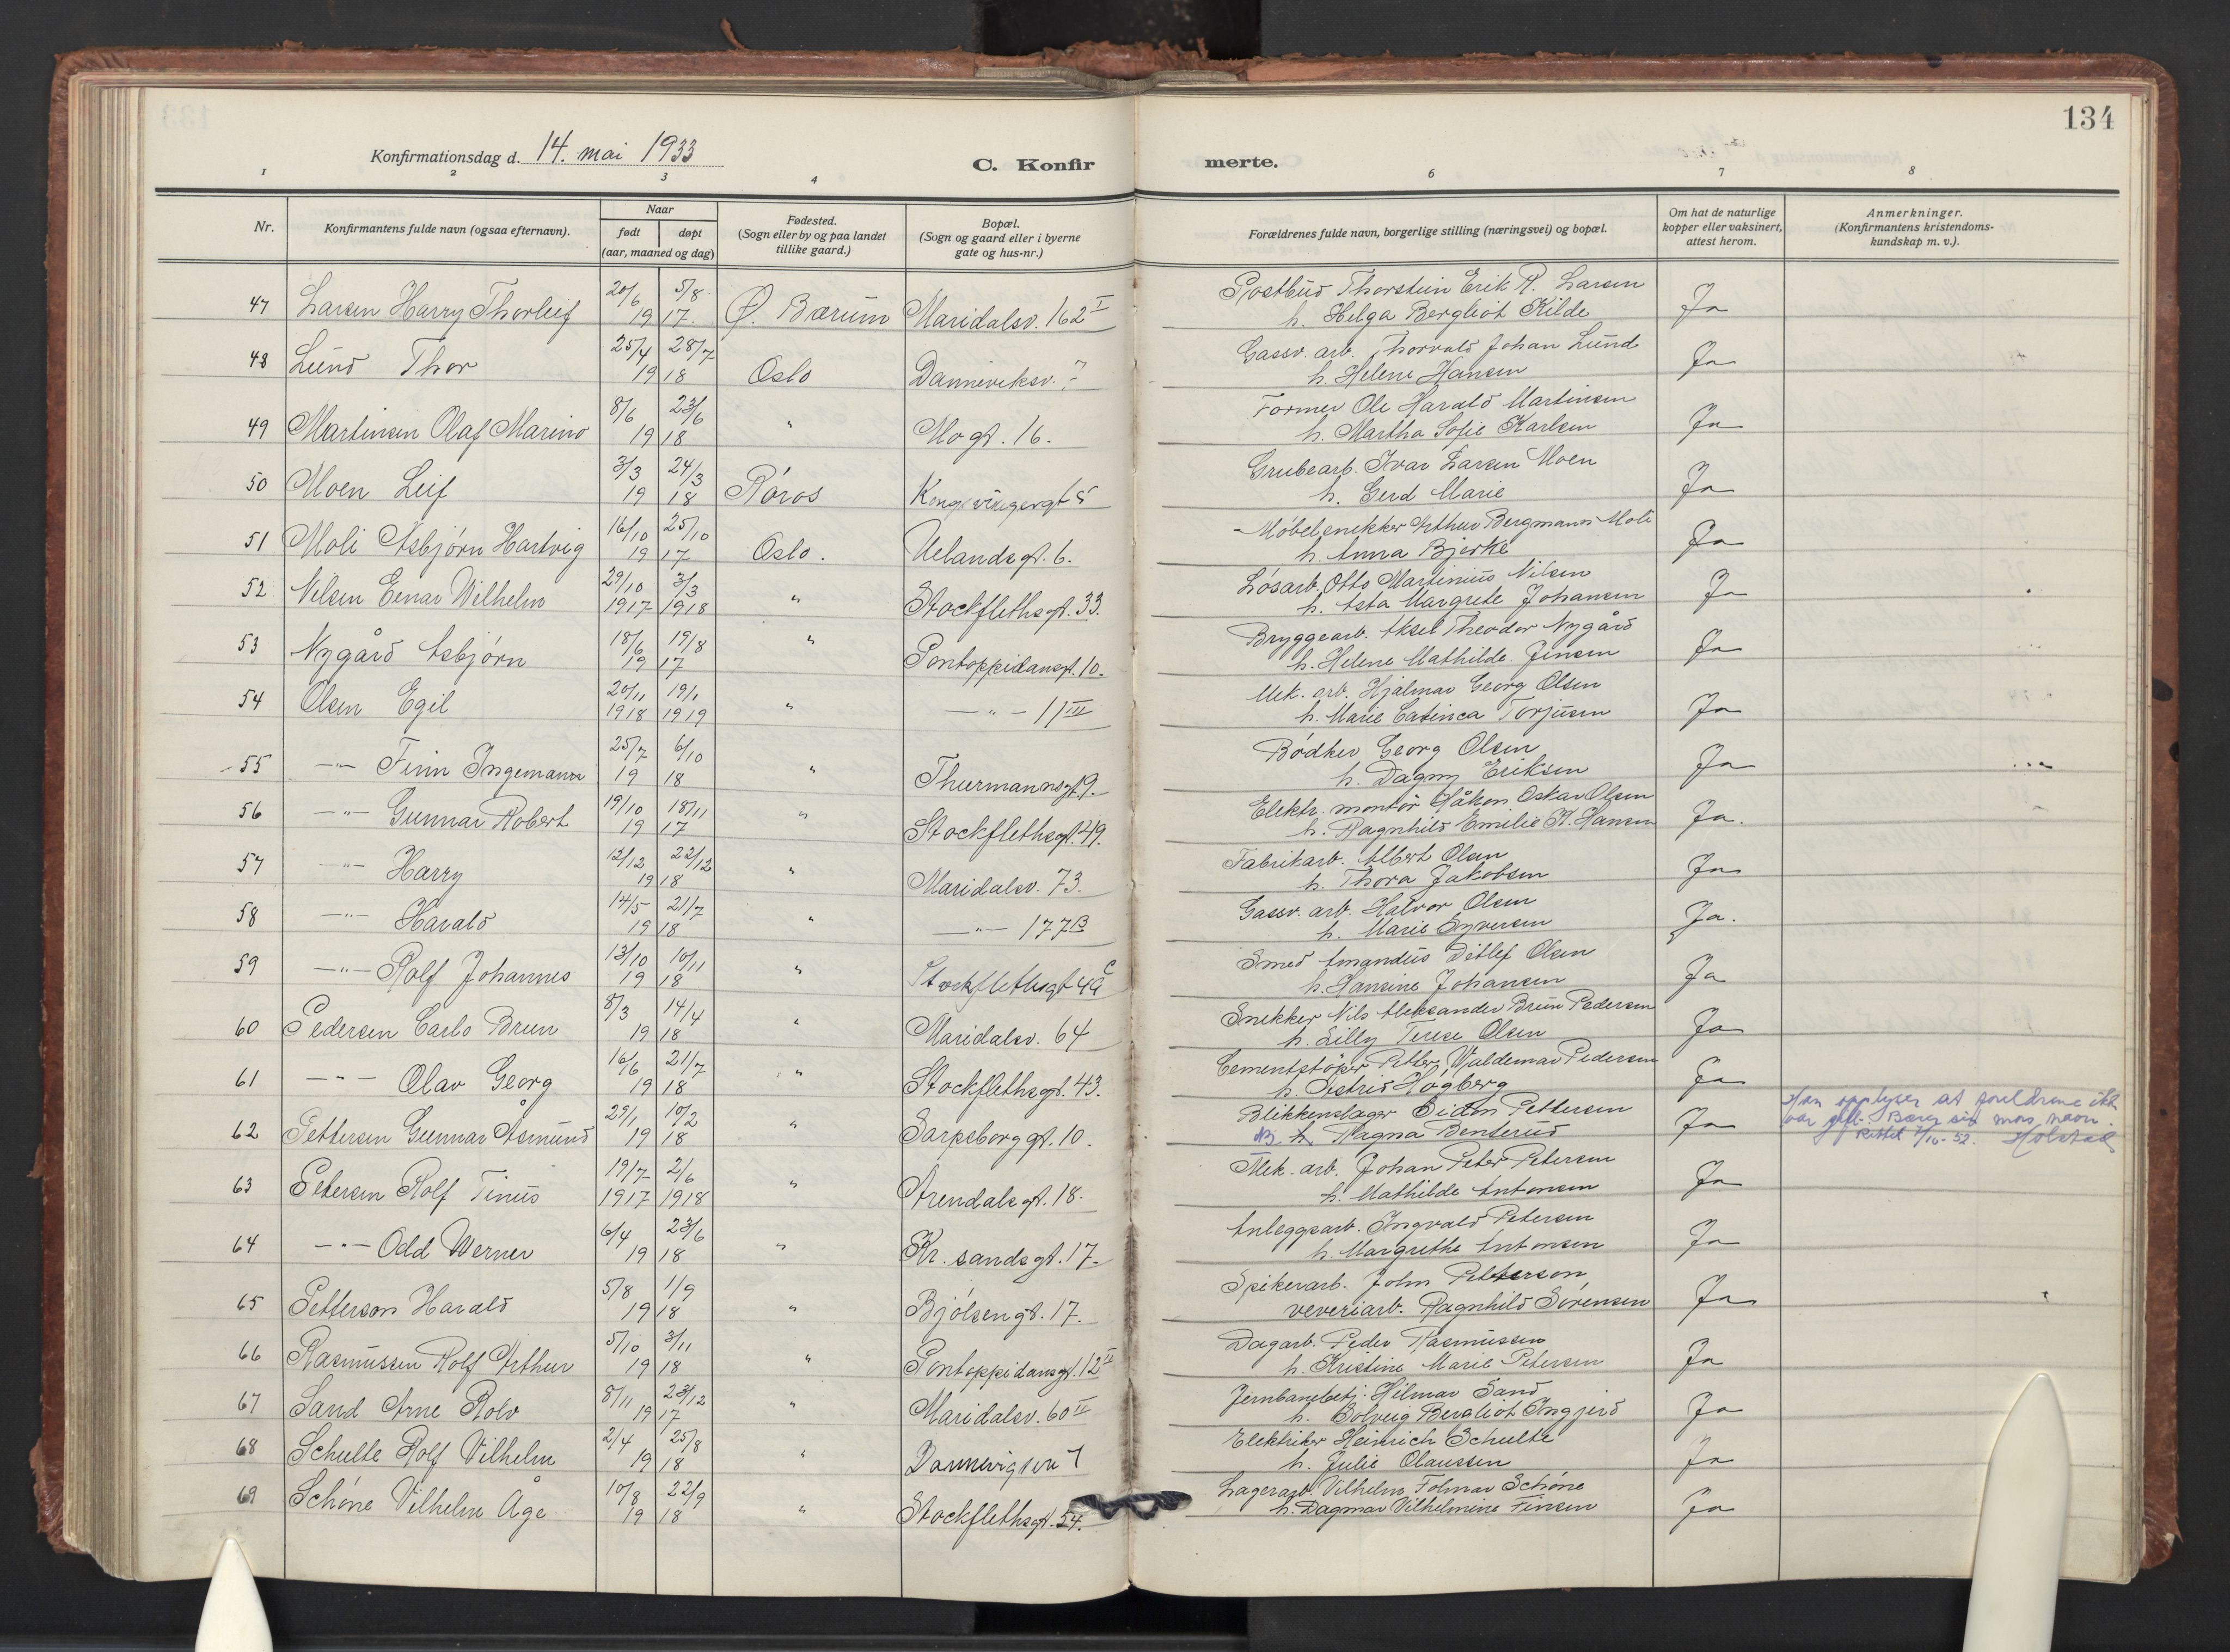 134
Konfirmationsdag d. 14. mai 1933
C. Konfir merte.
1 2 3 4 6 7 8
Nr.
Konfirmantens fulde navn (ogsaa efternavn).
Naar
født døpt
(aar, maaned og dag)
Fødested.
(Sogn eller by og paa landet
tillike gaard.)
Bopæl.
(Sogn og gaard eller i byerne
gate og hus-nr.)
Forældrenes fulde navn, borgerlige stilling (næringsvei) og bopæl.
Om hat de naturlige
kopper eller vaksinert,
attest herom.
Anmerkninger.
(Konfirmantens kristendoms-
kundskap m. v.).
20/6 5/8 Postbud Thorstein Erik R. Larsen
47 Larsen Harry Thorleif 19 17. Ø. Bærum Maridalsv. 162 I h. Helga Bergliot Kilde Ja
25/4 28/7 Gassv. arb. Thorvald Johan Lund
48 Lund Thor 19 18 Oslo Danneviksv. 7 h. Helene Hansen Ja
8/6 23/6 Former Ole Harald Martinsen
49 Martinsen Olaf Marino 19 18 " Mogt. 16. h. Martha Sofie Karlsen Ja
3/3 24/3 Grubearb. Ivar Larsen Moen
50 Moen Leif 19 18 Røros Kongsvingergt 5 h. Gerd Marie Ja
16/10 25/10 Møbelsnekker Arthur Bergmann Moli
51 Moli Asbjørn Hartvig 19 17 Oslo. Uelandsgt. 6. h. Anna Bjerke Ja
29/10 3/3 Løsarb. Otto Martinius Nilsen
52 Nilsen Einar Wilhelm 1917 1918 " Stockflethsgt. 33. h. Asta Margrete Johansen Ja
18/6 19/8 Bryggearb. Aksel Theodor Nygård
53 Nygård Asbjørn 19 17 " Pontoppidansgt. 10. h. Helene Mathilde Jensen Ja
20/11 19/1 Mek. arb. Hjalmar Georg Olsen
54 Olsen Egil 1918 1919 " — " — 11 III h. Marie Catinca Torjusen Ja
25/7 6/10 Bødker Georg Olsen
55 — " — Finn Ingemann 19 18 " Thurmannsgt 9. h. Dagny Eriksen Ja
19/10 18/11 Elektr. montør Håkon Oskar Olsen
56 — " — Gunnar Robert 19 17 " Stockflethsgt. 49. h. Ragnhild Emilie K. Hansen Ja.
12/12 22/12 Fabrikarb. Albert Olsen
57 — " — Harry 19 18 " Maridalsv. 73. h. Thora Jakobsen Ja
14/5 21/7 Gassv. arb. Halvor Olsen
58 — " — Harald 19 18 " — " — 177 B h. Marie Syversen Ja.
13/10 10/11 Smed Amandus Ditlef Olsen
59 — " — Rolf Johannes 19 18 " Stockflethsgt 49 c h. Hansine Johansen Ja
8/3 14/4 Snekker Nils Aleksander Brun Pedersen
60 Pedersen Carlo Brun 19 18 " Maridalsv. 64 h. Lilly Terese Olsen Ja
16/6 21/7 Cementstøper Petter Valdemar Pedersen
61 — " — Olav Georg 19 18 " Stockflethsgt. 43. h. Høgberg Ja
29/1 10/2 Blikkenslager Eidon Pettersen Han opplyser at foreldrene ikke
62 Pettersen Gunnar Åsmund 19 18 " Sarpsborggt. 10. h. Ragna Benterud Ja var gift. mors navn.
Rettet 7/10-52.
19/7 2/6 Mek. arb. Johan Peter Petersen
63 Petersen Rolf Tinius 1917 1918 " Arendalsgt. 18. h. Mathilde Antonsen Ja
6/4 23/6 Anleggsarb. Ingvald Petersen
64 — " — Odd Werner 19 18 " Kr. sandsgt. 17. h. Margrethe Antonsen Ja
5/8 1/9 Spikerarb. John Petterson,
65 Petterson Harald 19 18 " Bjølsengt. 17. veveriarb. Ragnhild Sørensen Ja
5/10 3/11 Dagarb. Peder Rasmussen
66 Rasmussen Rolf Arthur 19 18 " Pontoppidansgt. 12 II h. Kristine Marie Petersen Ja
8/11 23/12 Jernbanebetj. Hilmar Sand
67 Sand Arne Rolv 19 17 " Maridalsv. 60 II h. Solveig Bergliot Ingjerd Ja
2/4 25/8 Elektriker Heinrich Schulte
68 Schulte Rolf Vilhelm 19 18 " Dannevigsvn 7 h. Julie Olaussen Ja
10/8 22/9 Lagerarb. Vilhelm Folmar Schøne
69 Schøne Vilhelm Åge 19 18 " Stockflethsgt. 54. h. Dagmar Vilhelmine Finsen Ja